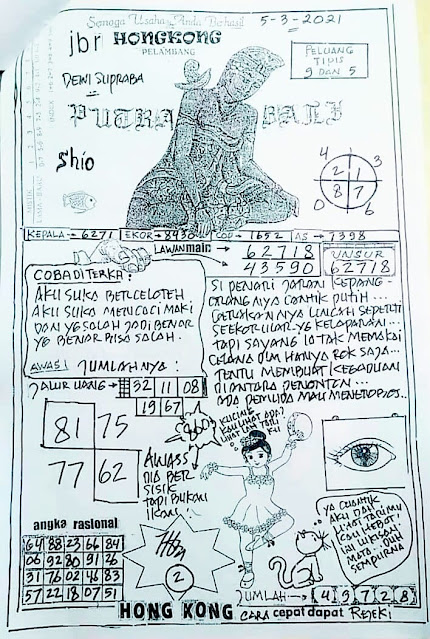 Semoga Usaha Anda Berhasil
5-3-2021
jbr HONGKONG
PELAMBANG
DEWI SUPRABA
PELUANG
TIPIS
9 DAN 5
PUTRA BALI
Shio
4 3
2 1
8 7
0 6
KEPALA → 6271 EKOR → 8930 COP → 1652 AS → 7398
LAWAN main → 62718
43590
UNSUR
62718
COBA DITERKA:
AKU SUKA BERCELOTEH
AKU SUKA MENCACI MAKI
DAN YG SALAH JADI BENAR
YG BENAR BISA SALAH.
AWAS! JUMLAHNYA:
SI PENARI JARAN KEPANG
ORANGNYA CANTIK PUTIH...
GERAKANNYA LINCAH SEPERTI
SEEKOR ULAR YG KELAPARAN...
TAPI SAYANG IA TAK MEMAKAI
CELANA DLM HANYA ROK SAJA...
TENTU MEMBUAT KEGADUAN
DIANTARA PENONTON...
ADA PEMUDA MAU
JALUR UANG → 32 11 08
19 67
81 75
77 62
860
KUCING
KAU LIHAT APA?
LIHAT LAH TARI
KU
AWASS
DIA BER
SISIK
TAPI BUKAN
IKAN!
angka rasional
64 88 23 66 84
06 92 80 91 26
31 76 02 46 83
57 22 18 07 51
2
YA CUANTIK
AKU DAH
LIHAT TARIMU
KAU HEBAT!
MATA DUH
SEMPURNA
JUMLAH → 4 9 7 2 8
HONG KONG CARA cepat dapat REJEKI